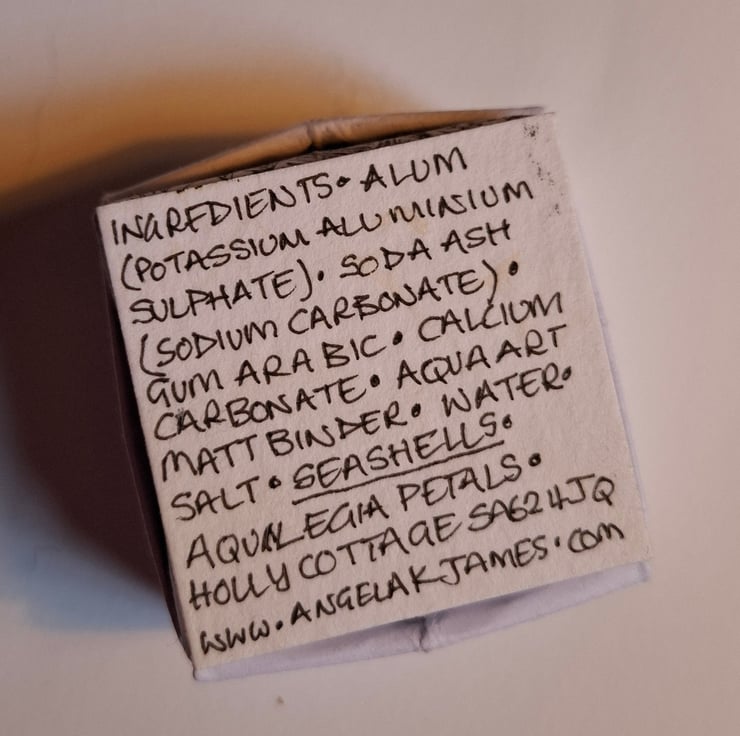 INGREDIENTS • ALUM
(POTASSIUM ALUMINIUM
SULPHATE). SODA ASH
(SODIUM CARBONATE) •
GUM ARABIC • CALCIUM
CARBONATE • AQUA ART
MATT BINDER • WATER •
SALT • SEASHELLS •
AQUILEGIA PETALS •
HOLLY COTTAGE SA62 4JQ
www.ANGELAKJAMES.COM